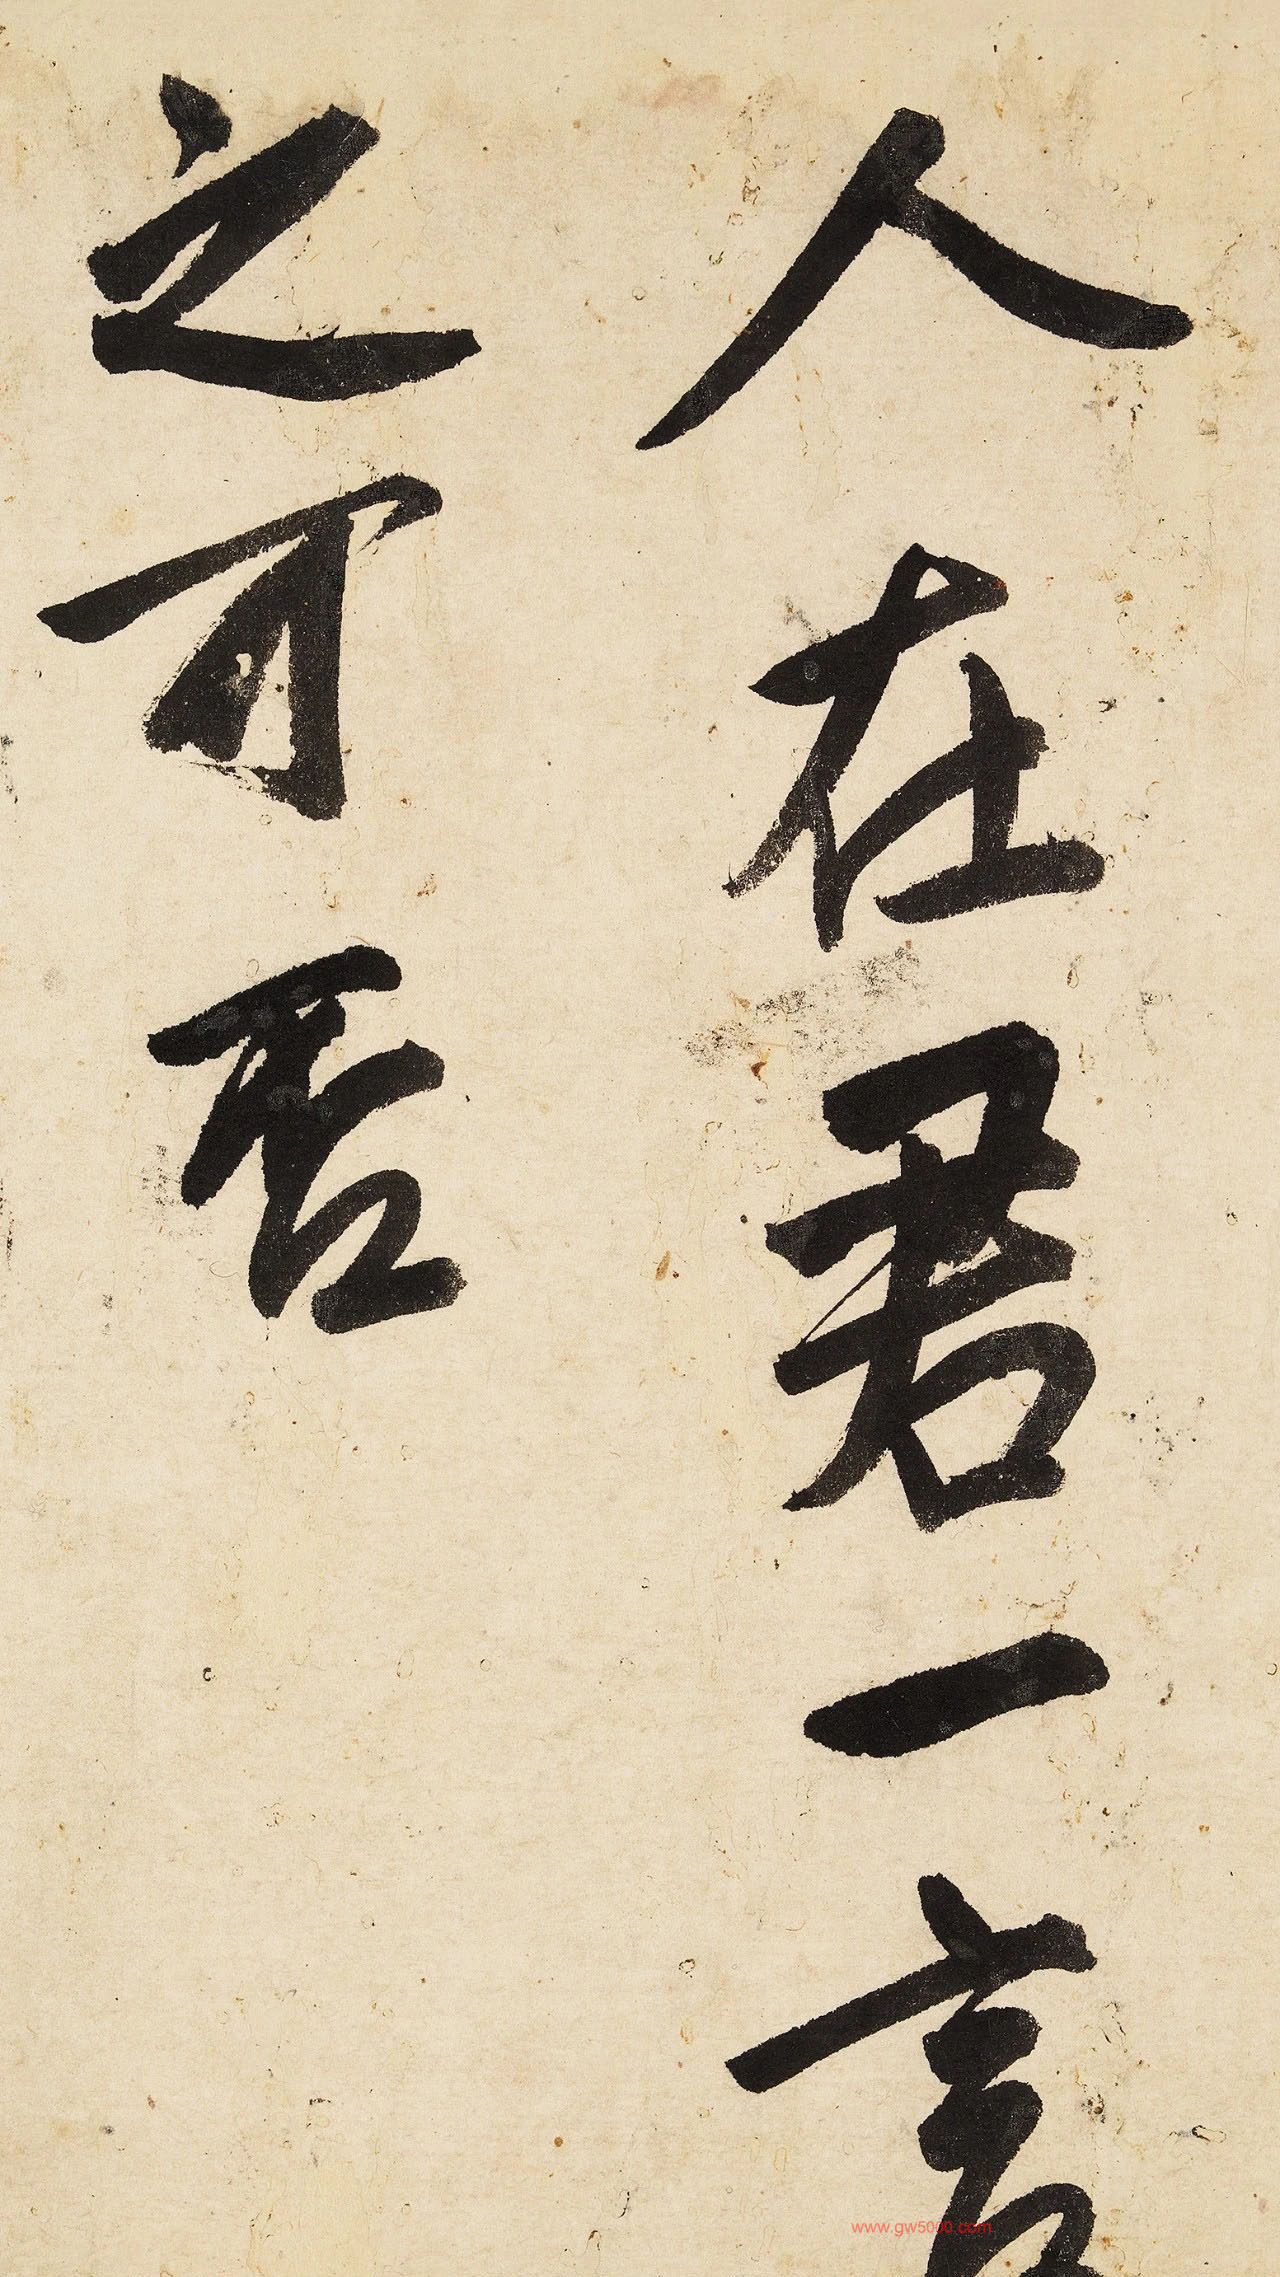 人在君一言
之可否
www.gw5000.com